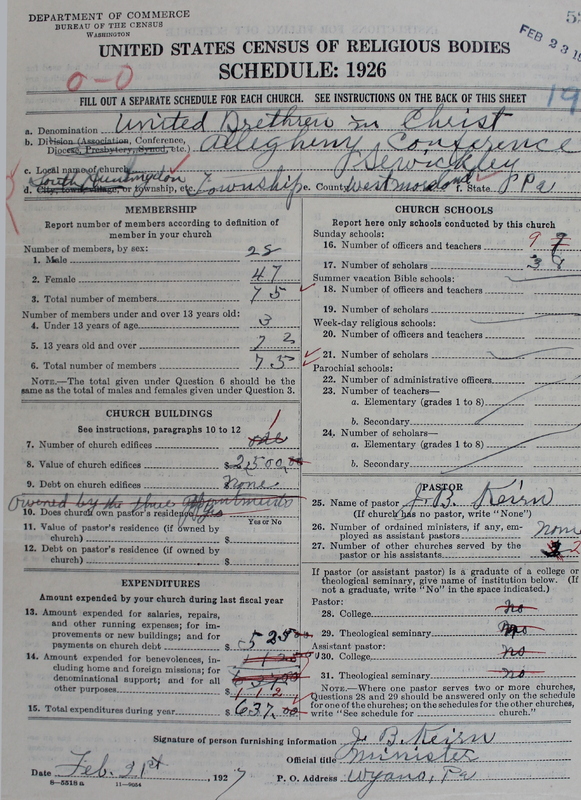 DEPARTMENT OF COMMERCE
BUREAU OF THE CENSUS
WASHINGTON
FEB 23 19
UNITED STATES CENSUS OF RELIGIOUS BODIES
SCHEDULE: 1926
0-0
FILL OUT A SEPARATE SCHEDULE FOR EACH CHURCH. SEE INSTRUCTIONS ON THE BACK OF THIS SHEET
19
a. Denomination United Brethren in Christ
b. Division (Association, Conference, Diocese, Presbytery, Synod, etc.) Allegheny Conference
c. Local name of church Sewickley
South Huntingdon
d. City, town, village, or township, etc. Township e. County Westmoreland f. State Pa
MEMBERSHIP
Report number of members according to definition of member in your church
Number of members, by sex:
1. Male 28
2. Female 47
3. Total number of members 75
Number of members under and over 13 years old:
4. Under 13 years of age 3
5. 13 years old and over 72
6. Total number of members 75
NOTE.—The total given under Question 6 should be the same as the total of males and females given under Question 3.
CHURCH BUILDINGS
See instructions, paragraphs 10 to 12
7. Number of church edifices one 1
8. Value of church edifices $2,500.00
9. Debt on church edifices None
owned by the three appointments
10. Does church own pastor's residence? yes
Yes or No
11. Value of pastor's residence (if owned by church) $
12. Debt on pastor's residence (if owned by church) $
EXPENDITURES
Amount expended by your church during last fiscal year
13. Amount expended for salaries, repairs, and other running expenses; for improvements or new buildings; and for payments on church debt $525.00
14. Amount expended for benevolences, including home and foreign missions; for denominational support; and for all other purposes $112
15. Total expenditures during year $637.00
CHURCH SCHOOLS
Report here only schools conducted by this church
Sunday schools:
16. Number of officers and teachers 9
17. Number of scholars
Summer vacation Bible schools:
18. Number of officers and teachers
19. Number of scholars
Week-day religious schools:
20. Number of officers and teachers
21. Number of scholars
Parochial schools:
22. Number of administrative officers
23. Number of teachers—
a. Elementary (grades 1 to 8)
b. Secondary
24. Number of scholars—
a. Elementary (grades 1 to 8)
b. Secondary
PASTOR
25. Name of pastor J. B. Keirn
(If church has no pastor, write "None")
26. Number of ordained ministers, if any, employed as assistant pastors none
27. Number of other churches served by the pastor or his assistants 2
If pastor (or assistant pastor) is a graduate of a college or theological seminary, give name of institution below. (If not a graduate, write "No" in the space indicated.)
Pastor:
28. College no
29. Theological seminary no
Assistant pastor:
30. College no
31. Theological seminary no
NOTE.—Where one pastor serves two or more churches, Questions 28 and 29 should be answered only on the schedule for one of the churches; on the schedules for the other churches, write "See schedule for church."
Signature of person furnishing information J. B. Keirn
Official title Minister
Date Feb. 21st, 1927 P. O. Address Wyano, Pa
8-5518a 11-9664